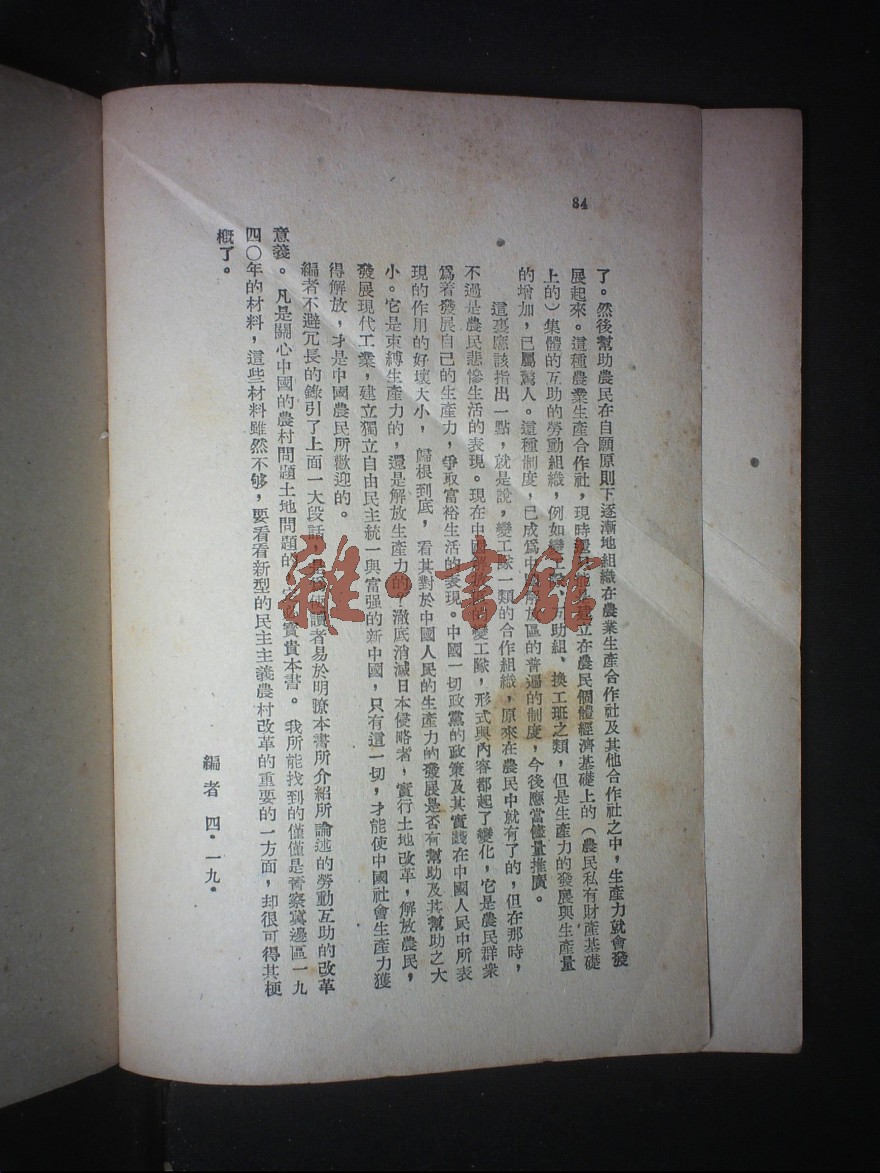 84
了。然後幫助農民在自願原則下逐漸地組織在農業生產合作社及其他合作社之中，生產力就會發
展起來。這種農業生產合作社，現時還立在農民個體經濟基礎上的（農民私有財產基礎
上的）集體的互助的勞動組織，例如變互助組、換工班之類，但是生產力的發展與生產量
的增加，已屬驚人。這種制度，已成爲中國解放區的普遍的制度，今後應當儘量推廣。
這裏應該指出一點，就是說，變工隊一類的合作組織，原來在農民中就有了的，但在那時，
不過是農民悲慘生活的表現。現在中國的變工隊，形式與內容都起了變化，它是農民群衆
爲着發展自己的生產力，爭取富裕生活的表現。中國一切政黨的政策及其實踐在中國人民中所表
現的作用的好壞大小，歸根到底，看其對於中國人民的生產力的發展是否有幫助及其幫助之大
小。它是束縛生產力的，還是解放生產力的？澈底消滅日本侵略者，實行土地改革，解放農民，
發展現代工業，建立獨立自由民主統一與富强的新中國，只有這一切，才能使中國社會生產力獲
得解放，才是中國農民所歡迎的。
編者不避冗長的錄引了上面一大段話，使讀者易於明瞭本書所介紹所論述的勞動互助的改革
意義。凡是關心中國的農村問題土地問題的寶貴本書。我所能找到的僅僅是晉察冀邊區一九
四〇年的材料，這些材料雖然不够，要看看新型的民主主義農村改革的重要的一方面，却很可得其梗
概了。
編者 四・一九・
雜・書館